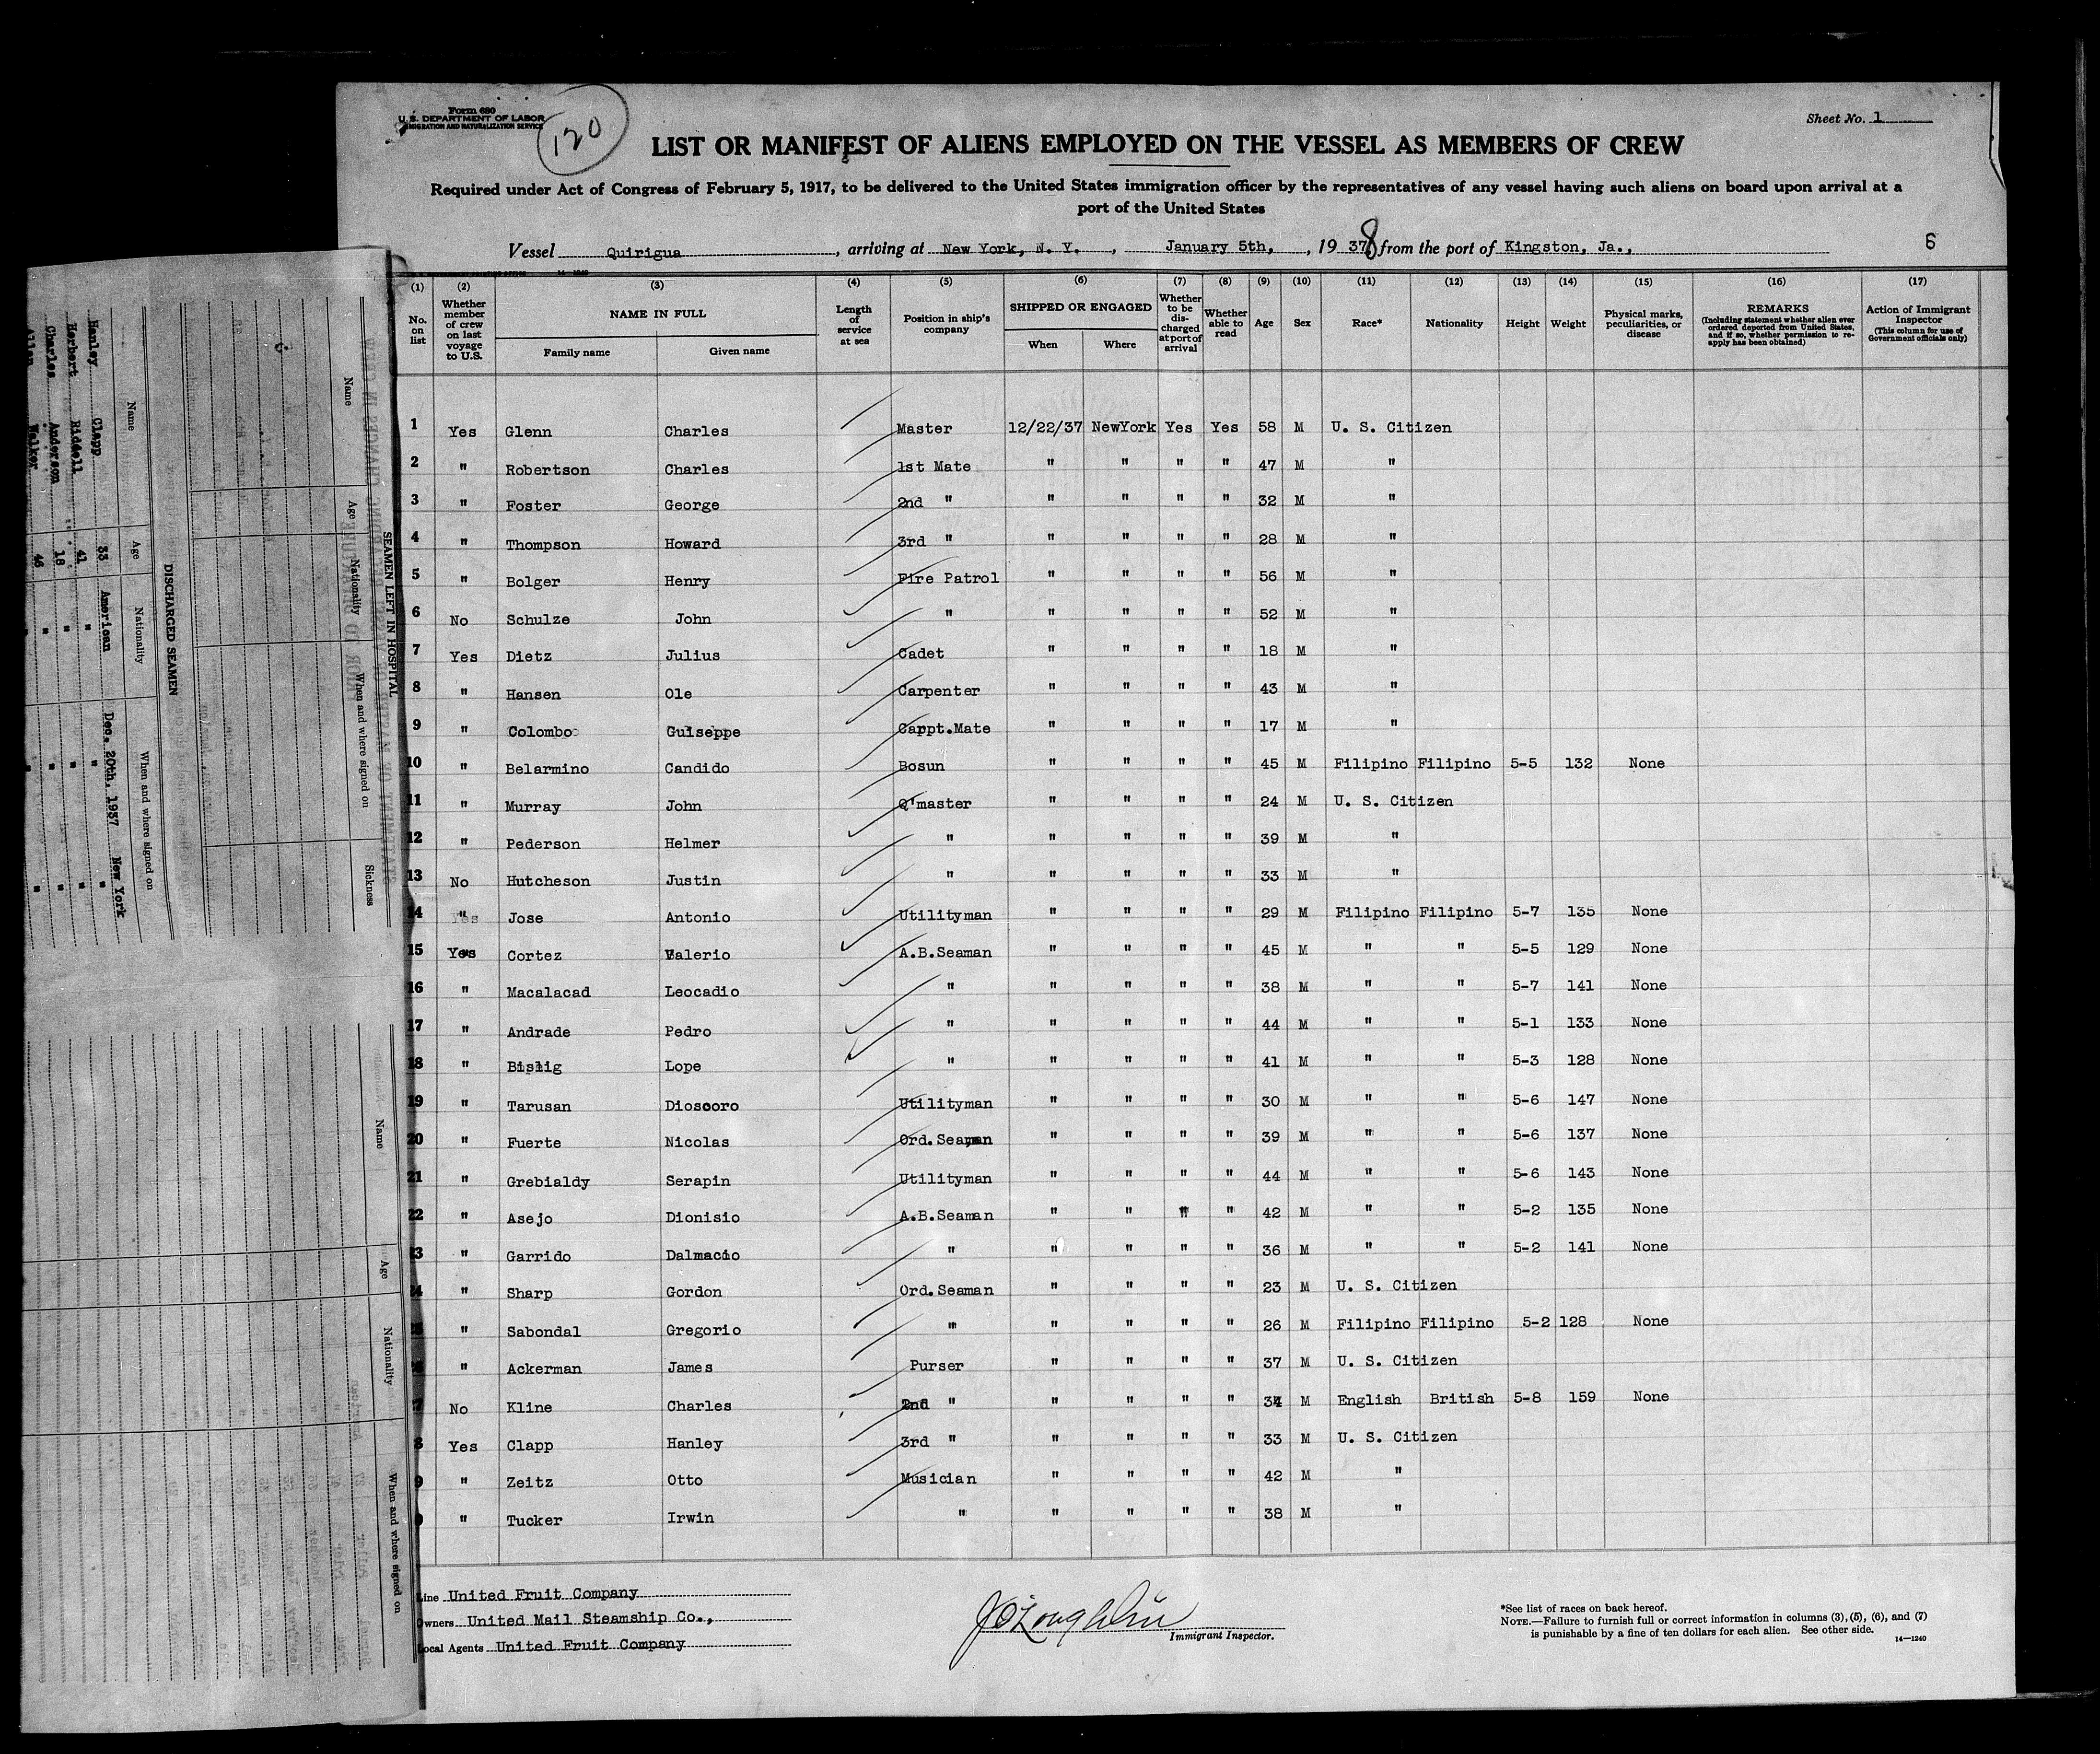 Form 680
U. S. DEPARTMENT OF LABOR
IMMIGRATION AND NATURALIZATION SERVICE
120
Sheet No. 1
LIST OR MANIFEST OF ALIENS EMPLOYED ON THE VESSEL AS MEMBERS OF CREW
Required under Act of Congress of February 5, 1917, to be delivered to the United States immigration officer by the representatives of any vessel having such aliens on board upon arrival at a
port of the United States
Vessel Quirigua, arriving at New York, N. Y., January 5th, , 19 378 from the port of Kingston, Ja.,
6
(1) (2) (3) (4) (5) (6) (7) (8) (9) (10) (11) (12) (13) (14) (15) (16) (17)
No. on list
Whether member of crew on last voyage to U.S.
NAME IN FULL
Family name Given name
Length of service at sea
Position in ship's company
SHIPPED OR ENGAGED
When Where
Whether to be discharged at port of arrival
Whether able to read
Age Sex Race* Nationality Height Weight
Physical marks, peculiarities, or disease
REMARKS
(Including statement whether alien ever ordered deported from United States, and if so, whether permission to reapply has been obtained)
Action of Immigrant Inspector
(This column for use of Government officials only)
1 Yes Glenn Charles Master 12/22/37 NewYork Yes Yes 58 M U. S. Citizen
2 " Robertson Charles 1st Mate " " " " 47 M "
3 " Foster George 2nd " " " " " 32 M "
4 " Thompson Howard 3rd " " " " " 28 M "
5 " Bolger Henry Fire Patrol " " " " 56 M "
6 No Schulze John " " " " " 52 M "
7 Yes Dietz Julius Cadet " " " " 18 M "
8 " Hansen Ole Carpenter " " " " 43 M "
9 " Colombo Guiseppe Cappt.Mate " " " " 17 M "
10 " Belarmino Candido Bosun " " " " 45 M Filipino Filipino 5-5 132 None
11 " Murray John Q'master " " " " 24 M U. S. Citizen
12 " Pederson Helmer " " " " " 39 M "
13 No Hutcheson Justin " " " " " 33 M "
14 " Jose Antonio Utilityman " " " " 29 M Filipino Filipino 5-7 135 None
15 Yes Cortez Valerio A.B.Seaman " " " " 45 M " " 5-5 129 None
16 " Macalacad Leocadio " " " " " 38 M " " 5-7 141 None
17 " Andrade Pedro " " " " " 44 M " " 5-1 133 None
18 " Bislig Lope " " " " " 41 M " " 5-3 128 None
19 " Tarusan Dioscoro Utilityman " " " " 30 M " " 5-6 147 None
20 " Fuerte Nicolas Ord.Seaman " " " " 39 M " " 5-6 137 None
21 " Grebialdy Serapin Utilityman " " " " 44 M " " 5-6 143 None
22 " Asejo Dionisio A.B.Seaman " " " " 42 M " " 5-2 135 None
3 " Garrido Dalmacio " " " " " 36 M " " 5-2 141 None
4 " Sharp Gordon Ord.Seaman " " " " 23 M U. S. Citizen
" Sabondal Gregorio " " " " " 26 M Filipino Filipino 5-2 128 None
" Ackerman James Purser " " " " 37 M U. S. Citizen
7 No Kline Charles 2nd " " " " " 34 M English British 5-8 159 None
8 Yes Clapp Hanley 3rd " " " " " 33 M U. S. Citizen
9 " Zeitz Otto Musician " " " " 42 M "
" Tucker Irwin " " " " " 38 M "
Line United Fruit Company
Owners United Mail Steamship Co.,
Local Agents United Fruit Company
Immigrant Inspector.
*See list of races on back hereof.
NOTE.—Failure to furnish full or correct information in columns (3), (5), (6), and (7)
is punishable by a fine of ten dollars for each alien. See other side.
14—1240
SEAMEN LEFT IN HOSPITAL
Name Age Nationality When and where signed on Sickness
DISCHARGED SEAMEN
Name Age Nationality When and where signed on
Hanley Clapp 33 American Dec. 20th, 1937 New York
Herbert Riddell 41 " " "
Charles Anderson 18 " " "
Allen Walker 46 " " "
Name Age Nationality When and where signed on